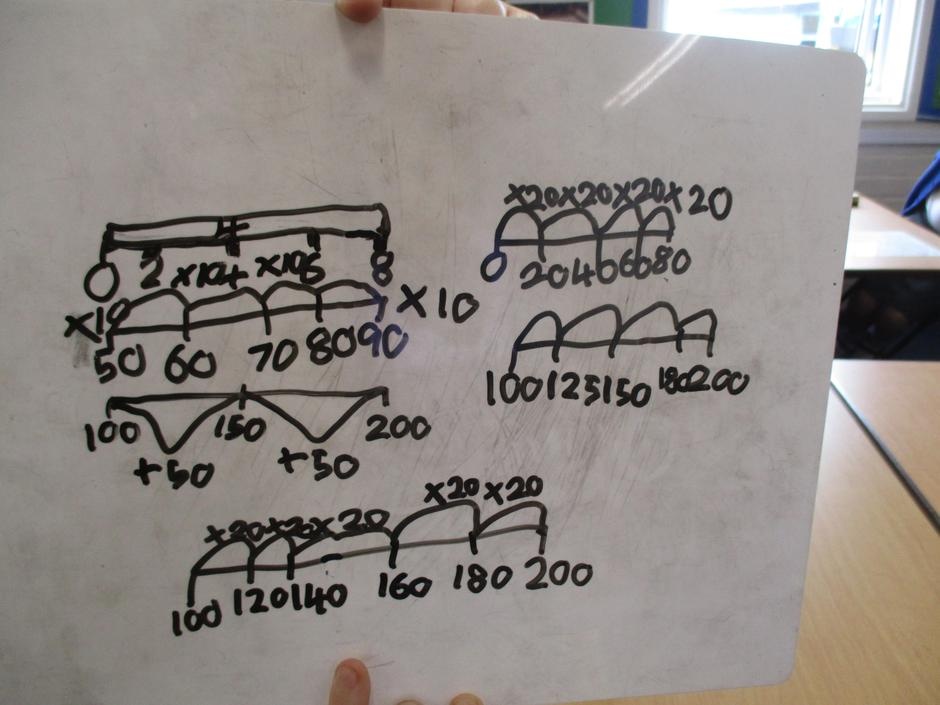 0 2 4 6 8
×10 ×10 ×10 ×10
50 60 70 80 90
100 150 200
+50 +50
×20 ×20 ×20 ×20
0 20 40 60 80
100 125 150 180 200
×20 ×20 ×20 ×20 ×20
100 120 140 160 180 200